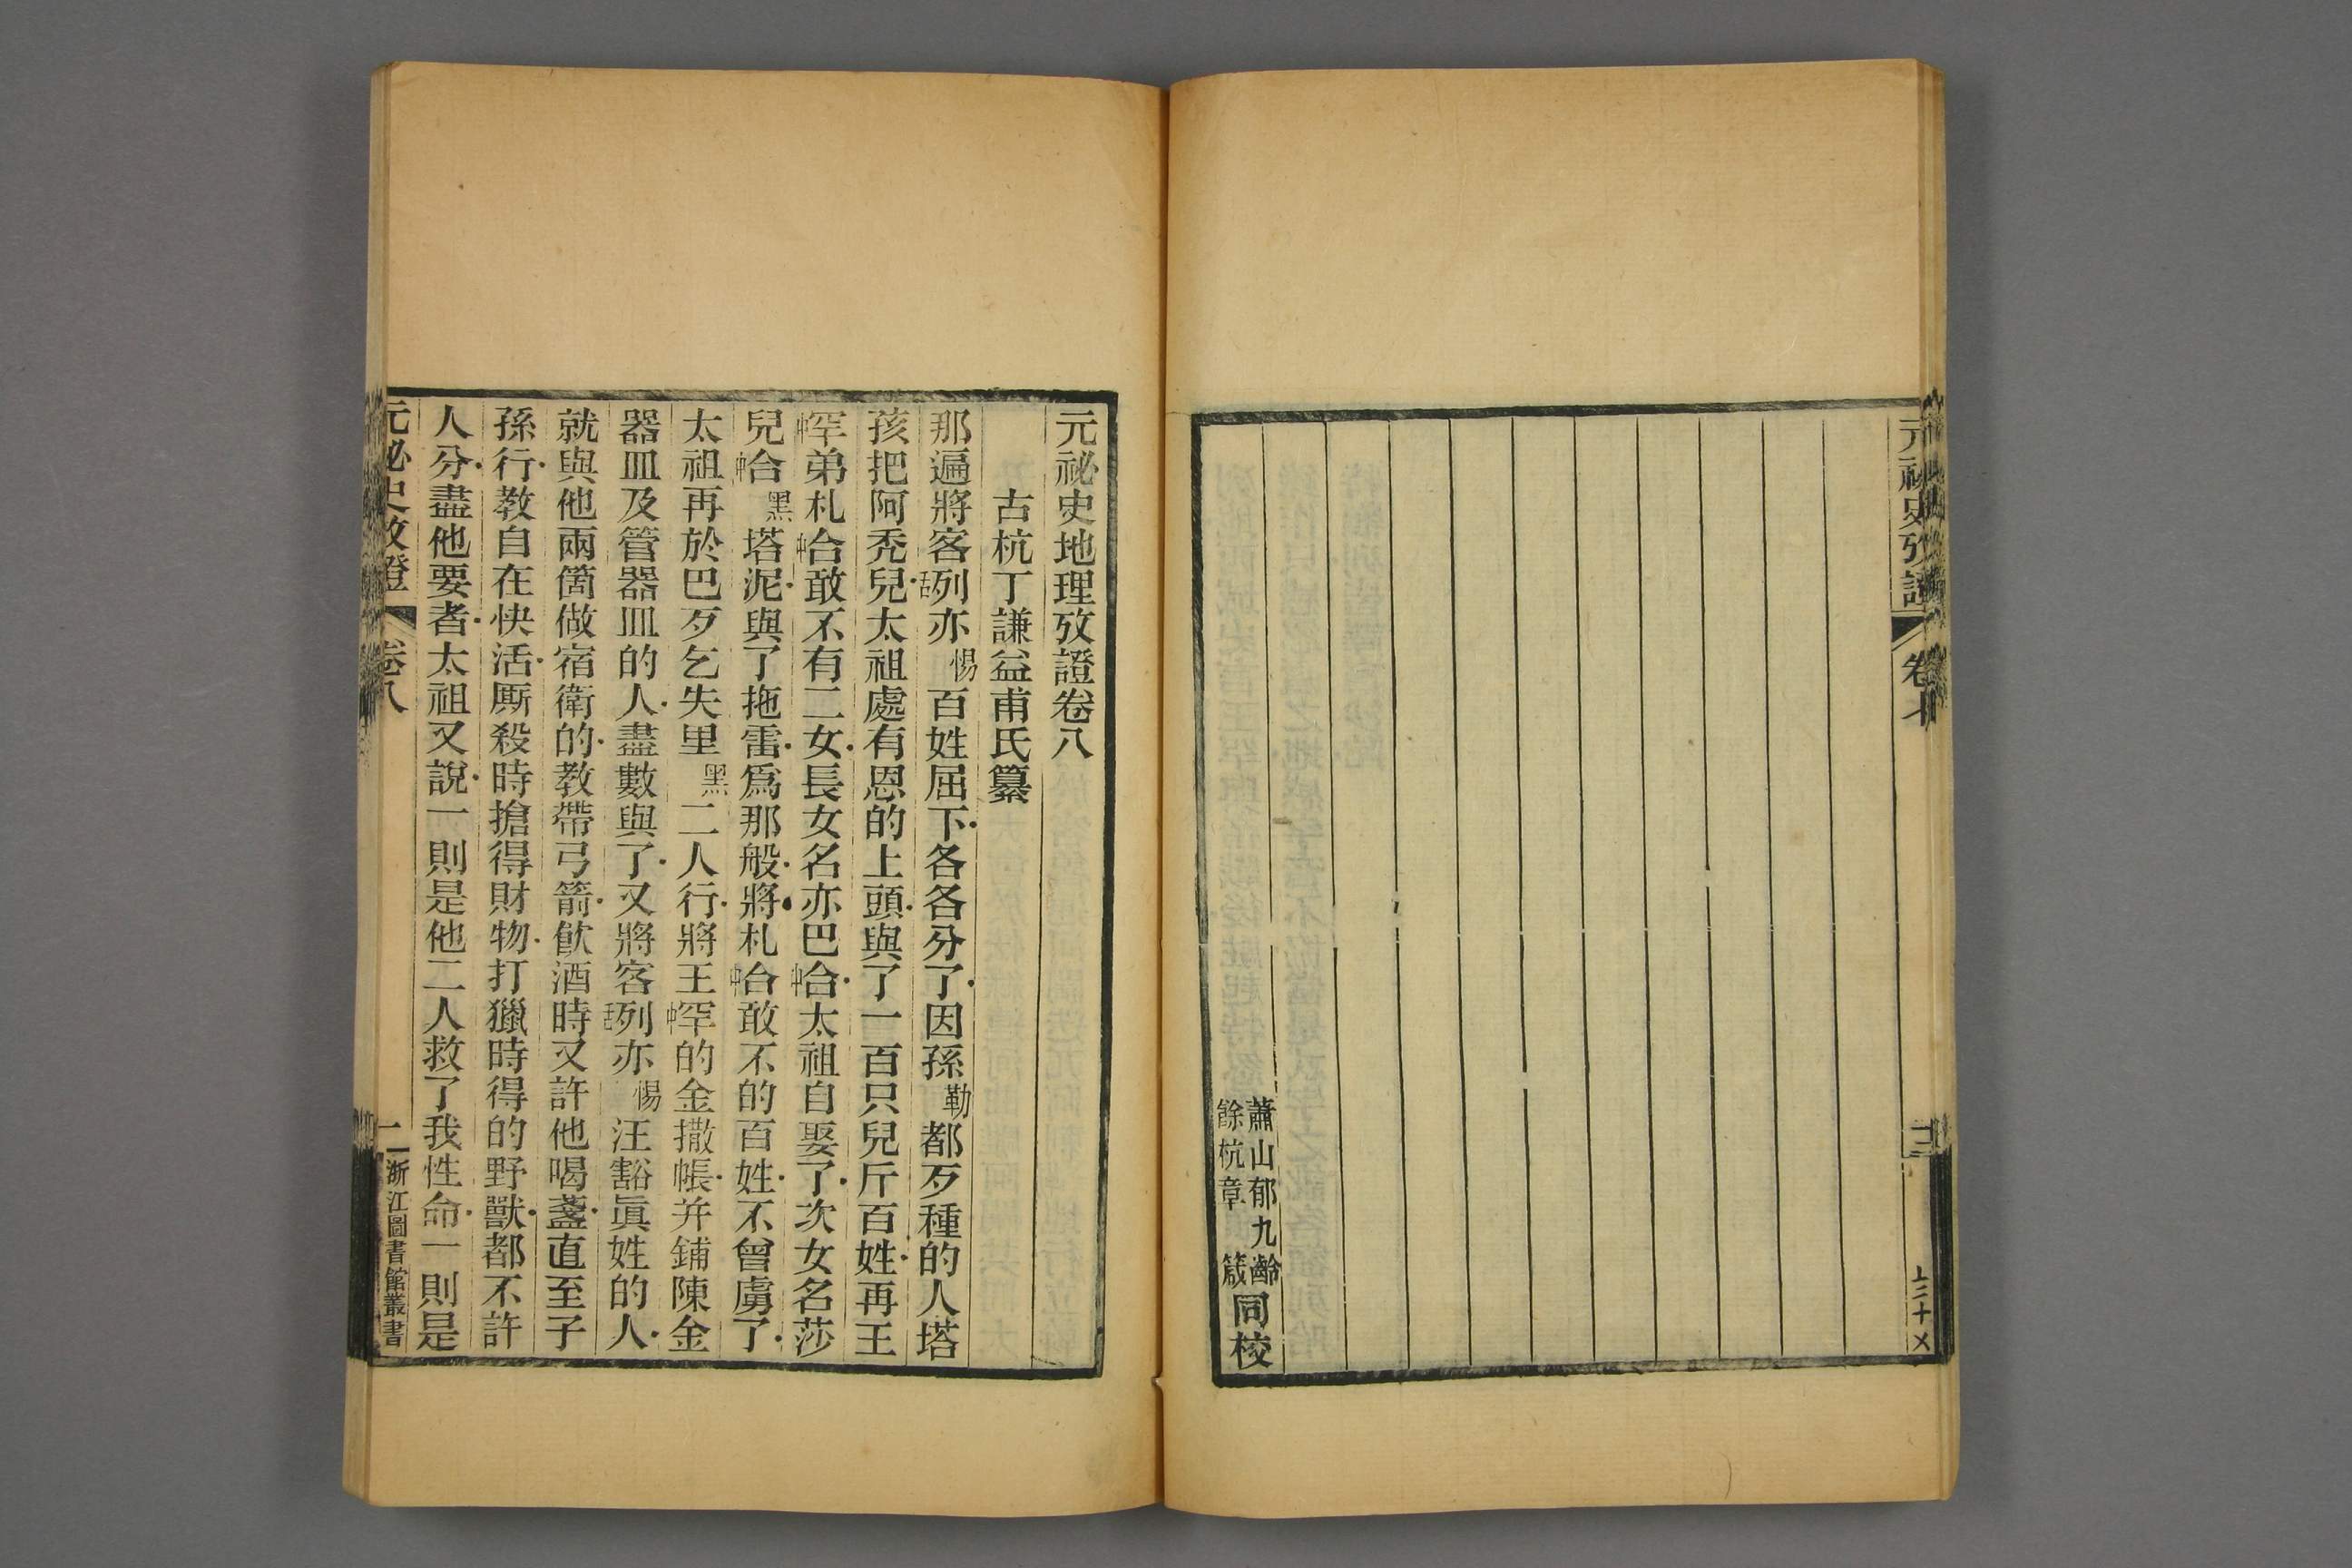 元祕史攷證
卷七
蕭山郁九齡
餘杭章　箴
同校
元祕史地理攷證卷八
古杭丁謙益甫氏纂
那遍將客舌列亦惕百姓屈下各各分了因孫勒都歹種的人塔
孩把阿禿兒太祖處有恩的上頭與了一百只兒斤百姓再王
中罕弟札中合敢不有二女長女名亦巴中合太祖自娶了次女名莎
兒中合黑塔泥與了拖雷爲那般將札中合敢不的百姓不曾虜了
太祖再於巴歹乞失里黑二人行將王中罕的金撒帳并鋪陳金
器皿及管器皿的人盡數與了又將客舌列亦惕汪豁眞姓的人
就與他兩箇做宿衛的教帶弓箭飮酒時又許他喝盞直至子
孫行教自在快活厮殺時搶得財物打獵時得的野獸都不許
人分盡他要者太祖又說一則是他二人救了我性命一則是
元祕史攷證
卷八
一
浙江圖書館叢書